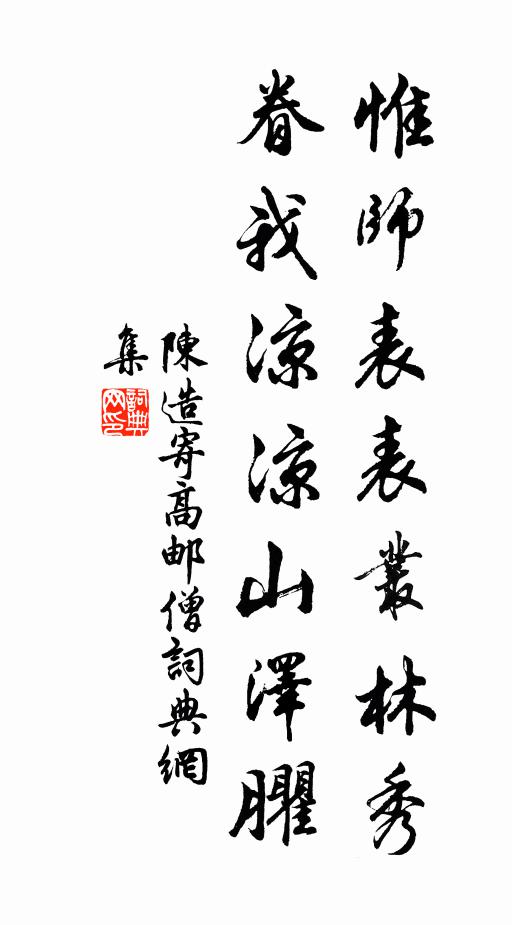 惟師表表叢林秀
眷我涼涼山澤臞
陳造寄高郵僧詞典網
集
詞典網印